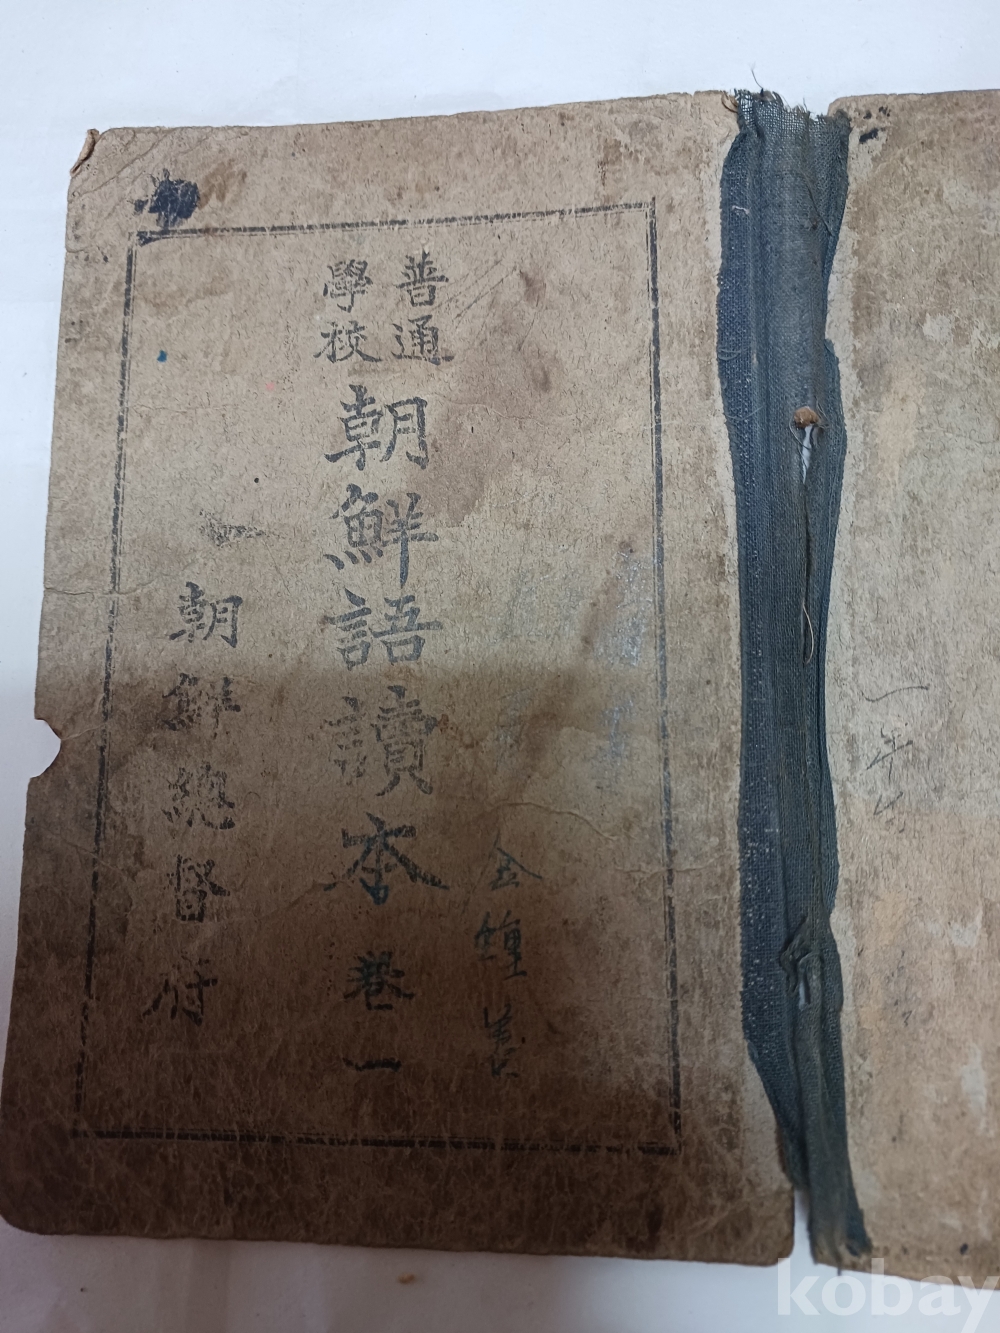 普通
學校
朝鮮語讀本 卷一
朝鮮總督府
金鐘善
kobay